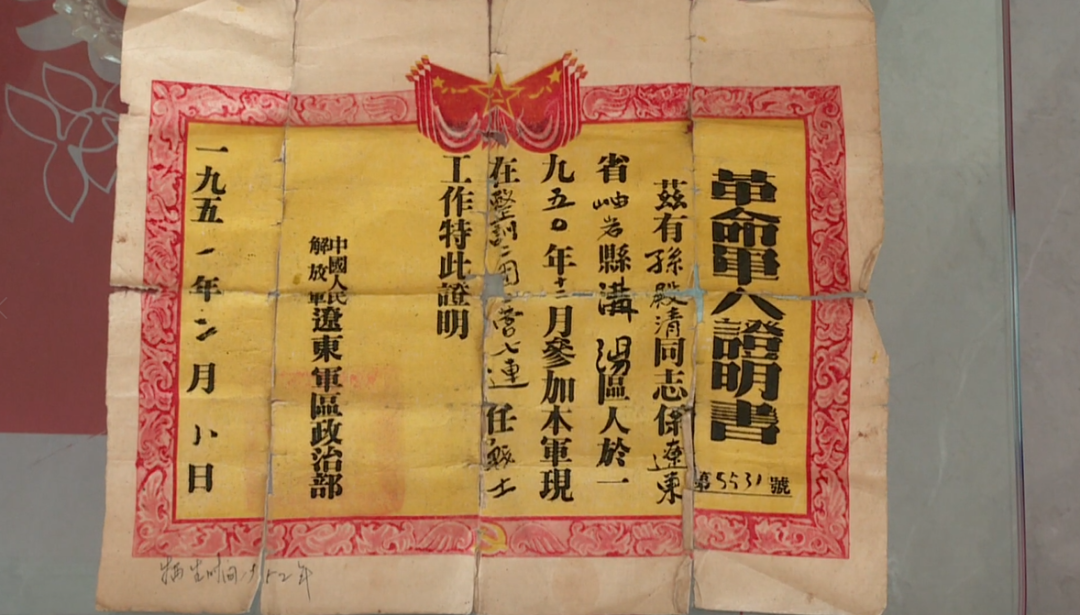 革命軍人證明書
第5531號
茲有孫殿清同志係遼東
省岫岩縣溝湯區人於一
九五〇年十二月參加本軍現
在整訓二團三營七連任戰士
工作特此證明
中國人民
解放軍
遼東軍區政治部
一九五一年二月八日
牺生时间1952年